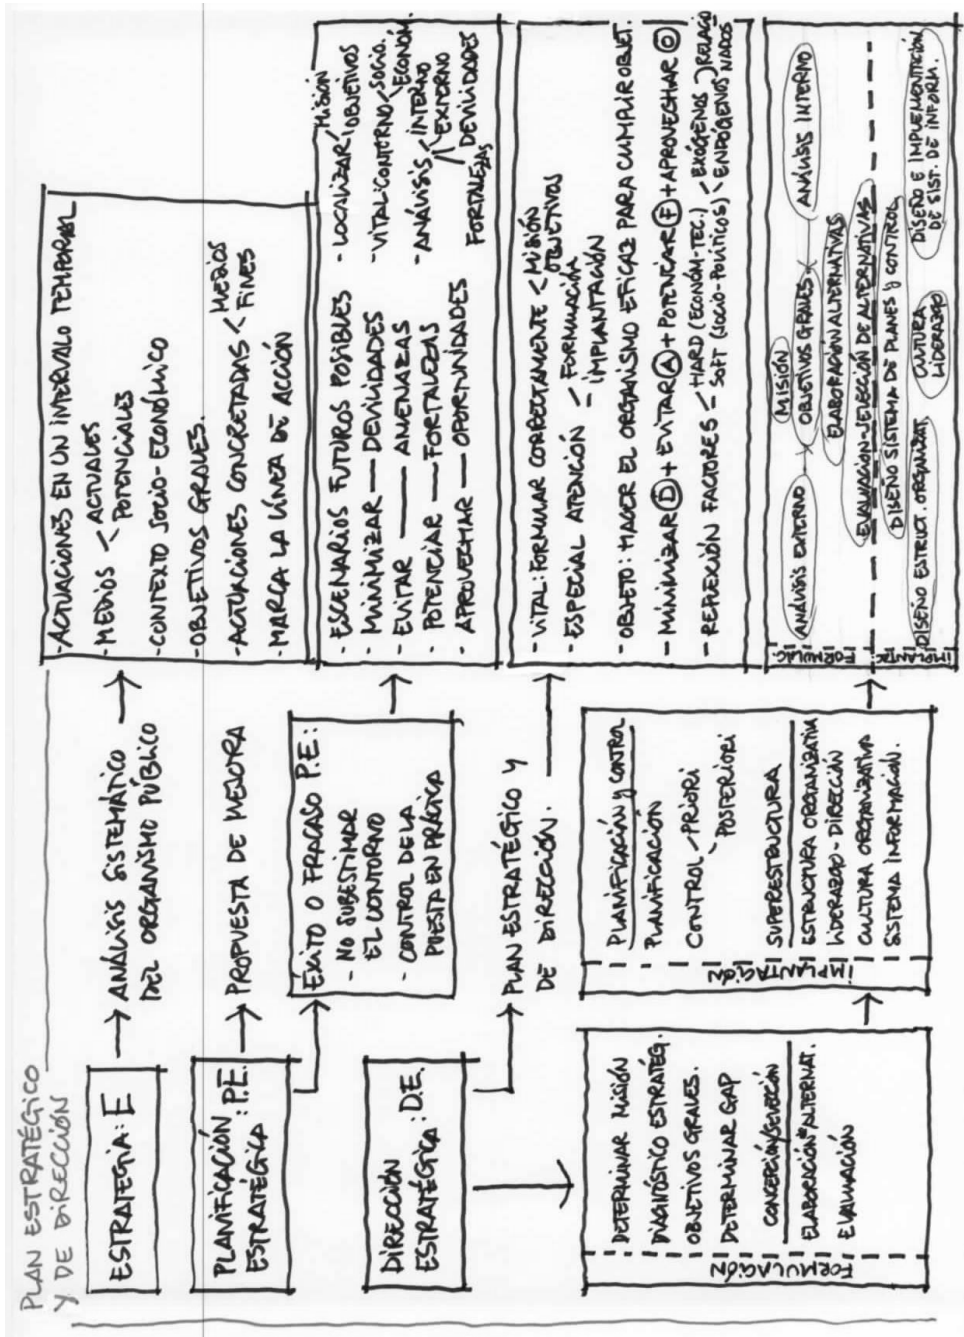 PLAN ESTRATÉGICO
Y DE DIRECCIÓN
ESTRATEGIA: E
ANÁLISIS SISTEMÁTICO
DEL ORGANISMO PÚBLICO
-ACTUACIONES EN UN INTERVALO TEMPORAL
-MEDIOS < ACTUALES
POTENCIALES
-CONTEXTO SOCIO-ECONÓMICO
-OBJETIVOS GRALES.
-ACTUACIONES CONCRETADAS < MEDIOS
FINES
-MARCA LA LÍNEA DE ACCIÓN
PLANIFICACIÓN
ESTRATÉGICA: P.E.
PROPUESTA DE MEJORA
ÉXITO O FRACASO P.E.:
- NO SUBESTIMAR
EL CONTORNO
- CONTROL DE LA
PUESTA EN PRÁCTICA
- ESCENARIOS FUTUROS POSIBLES
- MINIMIZAR — DEVILIDADES
EVITAR — AMENAZAS
POTENCIAR — FORTALEZAS
APROVECHAR — OPORTUNIDADES
- LOCALIZAR < MISIÓN
OBJETIVOS
- VITAL: CONTORNO < SOCIO.
ECONÓM
- ANÁLISIS < INTERNO
EXTERNO
DEVILIDADES
FORTALEZAS
DIRECCIÓN
ESTRATÉGICA: D.E.
PLAN ESTRATÉGICO Y
DE DIRECCIÓN.
- VITAL: FORMULAR CORRECTAMENTE < MISIÓN
OBJETIVOS
- ESPECIAL ATENCIÓN < FORMULACIÓN
IMPLANTACIÓN
- OBJETO: HACER EL ORGANISMO EFICAZ PARA CUMPLIR OBJET.
- MINIMIZAR D + EVITAR A + POTENCIAR F + APROVECHAR O
- REFLEXIÓN FACTORES < HARD (ECONÓM-TEC.) < EXÓGENOS } RELACIO
SOFT (SOCIO-POLÍTICOS) < ENDÓGENOS } NADOS
FORMULACIÓN
DETERMINAR MISIÓN
DIAGNÓSTICO ESTRATÉG.
OBJETIVOS GRALES.
DETERMINAR GAP
CONCEPCIÓN/SELECCIÓN
ELABORACIÓN ALTERNAT.
EVALUACIÓN
IMPLANTACIÓN
PLANIFICACIÓN Y CONTROL
PLANIFICACIÓN
CONTROL - PRIORI
POSTERIORI
SUPERESTRUCTURA
ESTRUCTURA ORGANIZATIVA
LIDERAZGO - DIRECCIÓN
CULTURA ORGANIZATIVA
SISTEMA INFORMACIÓN.
FORMULAC
MISIÓN
ANÁLISIS EXTERNO
OBJETIVOS GRALES
ANÁLISIS INTERNO
ELABORACIÓN ALTERNATIVAS
EVALUACIÓN-SELECCIÓN DE ALTERNATIVAS
IMPLANTAC
DISEÑO SISTEMA DE PLANES Y CONTROL
DISEÑO ESTRUCT. ORGANIZAT.
CULTURA
LIDERAZGO
DISEÑO E IMPLEMENTACIÓN
DE SIST. DE INFORM.